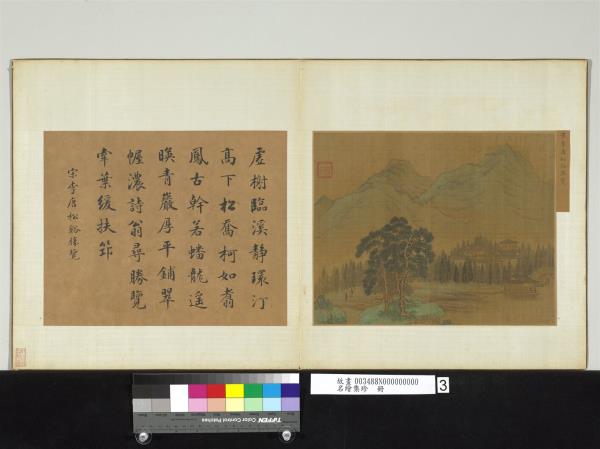 虛榭臨溪靜環汀
高下松喬柯如翥
鳳古幹若蟠龍遙
暎青巖厚平鋪翠
幄濃詩翁尋勝覽
牽葉緩扶筇
宋李唐松谿勝覽
故畫 003488N000000000
名繪集珍 冊
3
TIFFEN Color Control Patches